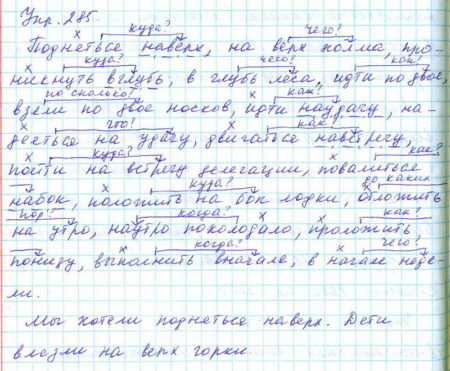 Упр. 285.
куда? чего?
Подняться наверх, на верх холма, про-
куда? чего? как?
никнуть вглубь, в глубь леса, идти по двое,
по сколько? как?
взяли по двое носков, идти наудачу, на-
что? как?
деяться на удачу, двигаться навстречу,
куда? как?
пойти на встречу делегации, повалиться
куда? до каких
набок, положить на бок лодки, отложить
пор? когда? как?
на утро, наутро похолодало, проложить
когда? чего?
понизу, выполнить вначале, в начале неде-
ли.
Мы хотели подняться наверх. Дети
влезли на верх горки